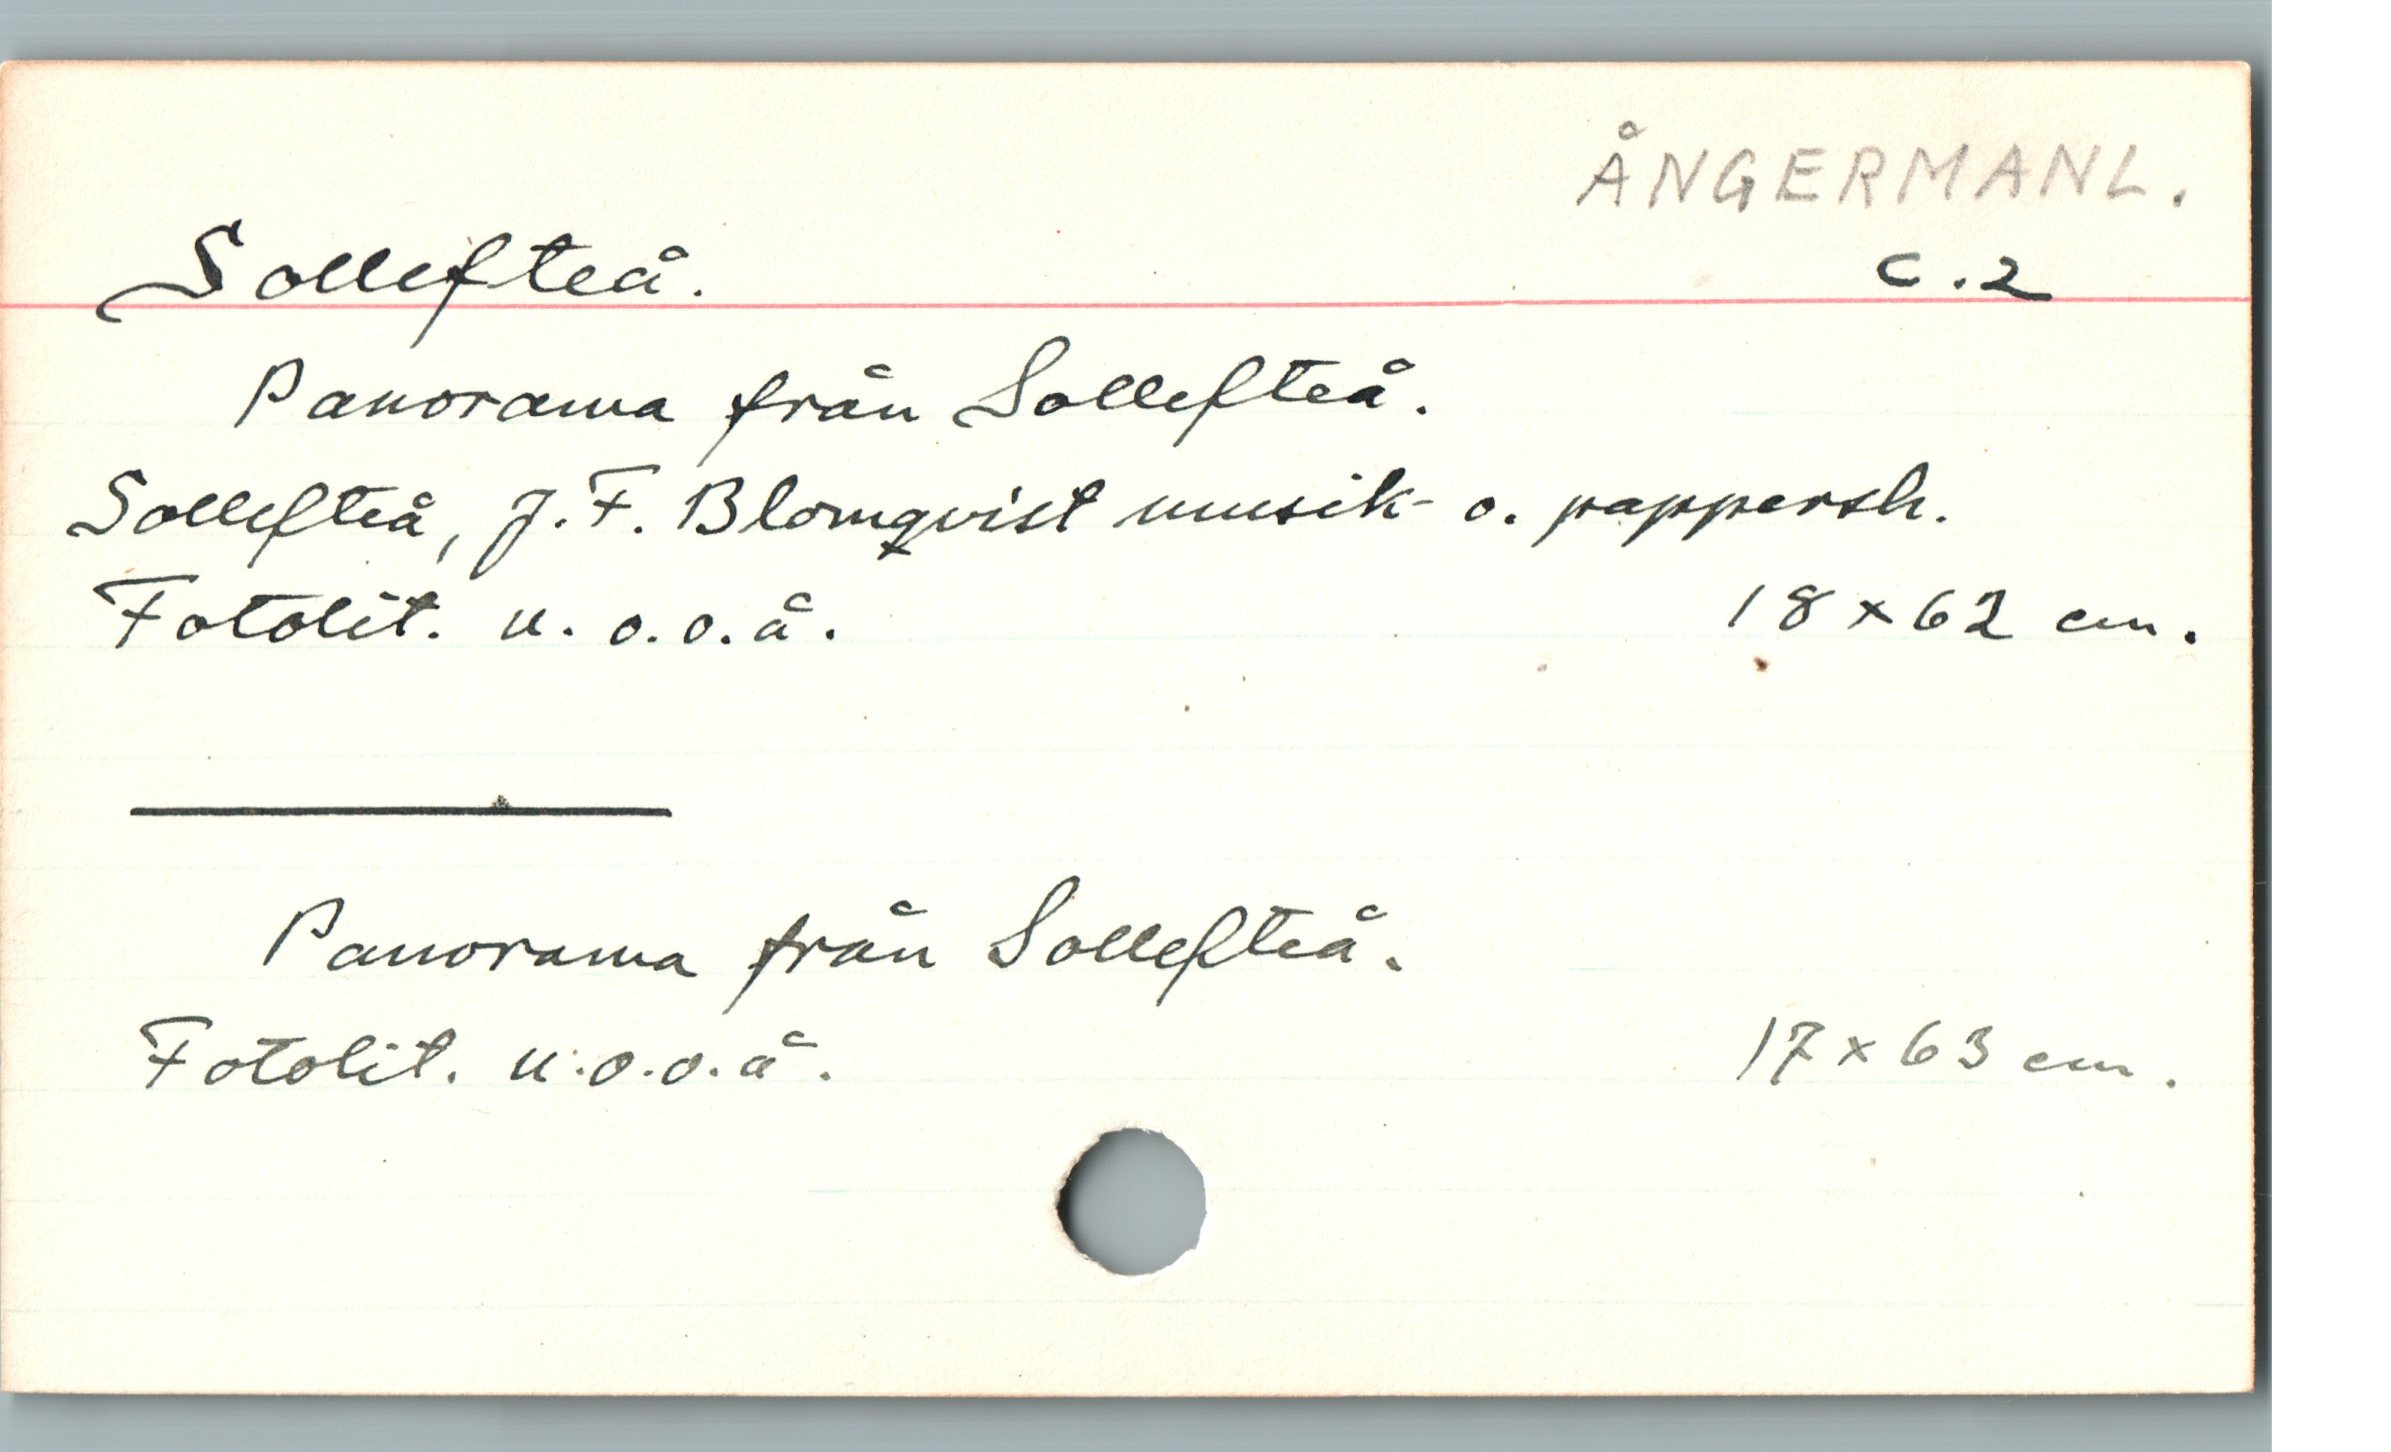 ÅNGERMANL.
Sollefteå. C.2
Panorama från Sollefteå.
Sollefteå, J.F. Blomqvist musik- o. pappersh.
Fotolit. u.o.o.å. 18 x 62 cm.
Panorama från Sollefteå.
Fotolit. u.o.o.å. 17 x 63 cm.